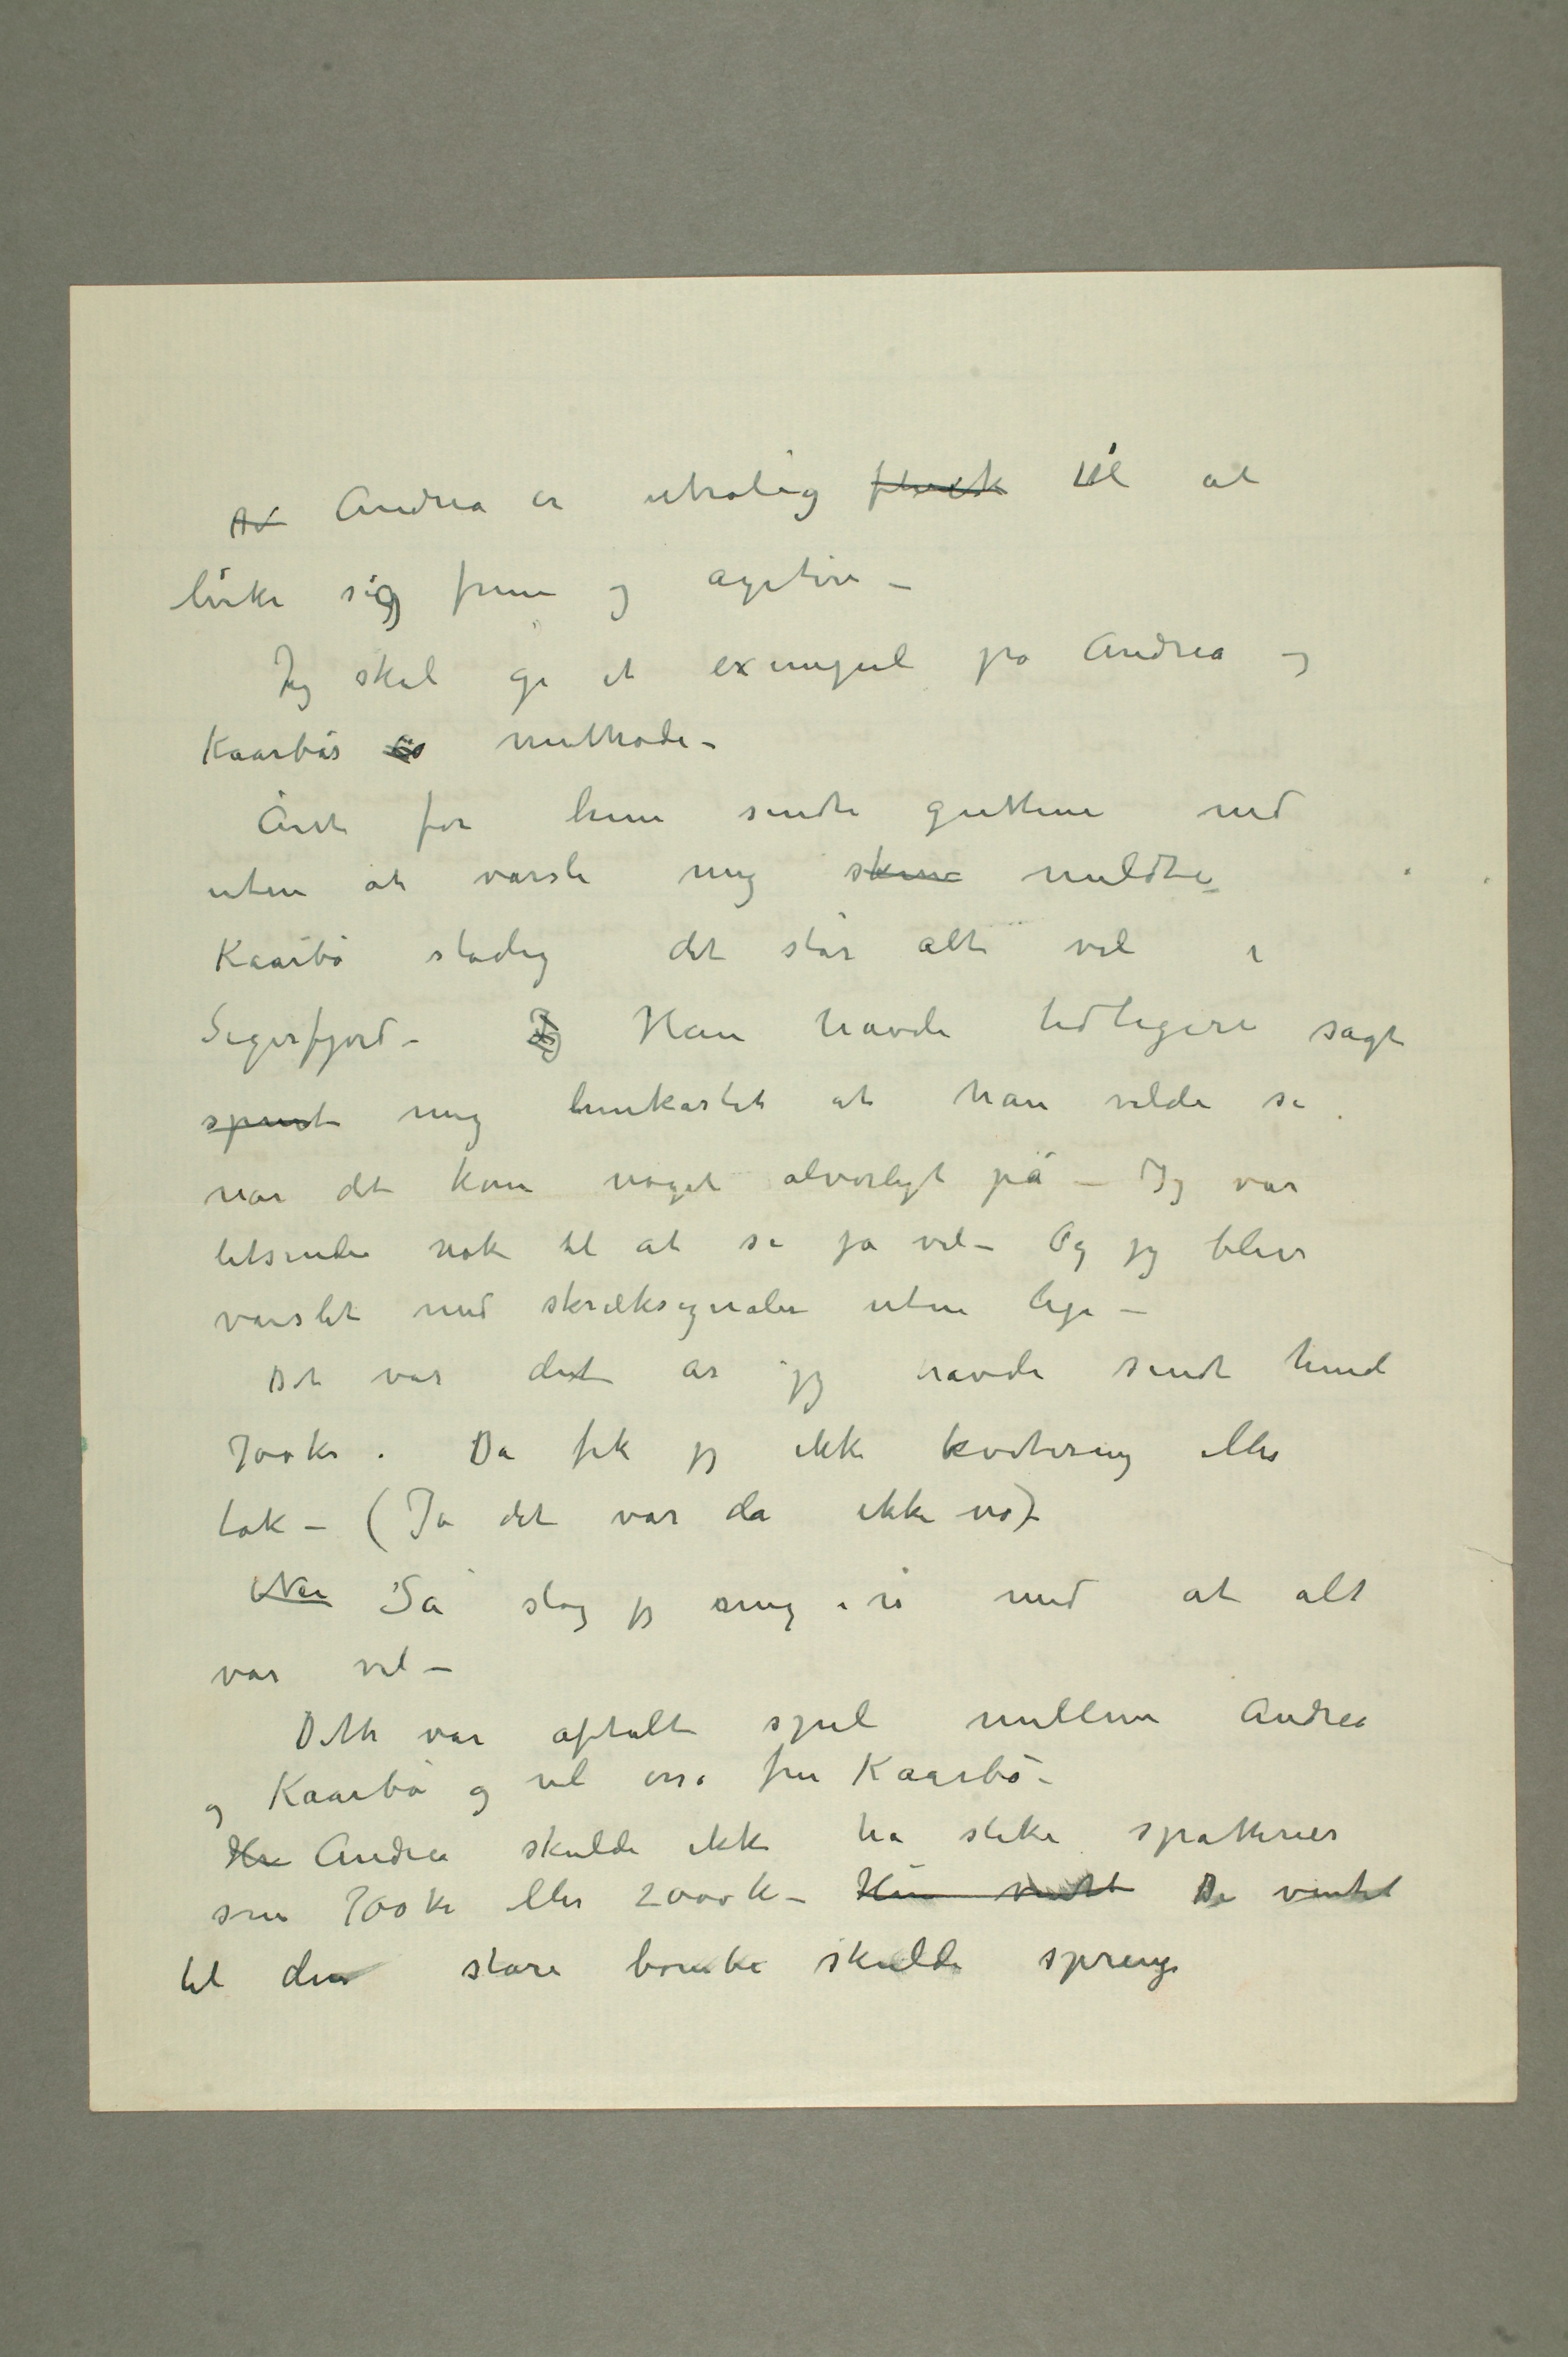 Andrea er utrolig flink til at
lirke sig frem og agitere –
Jeg skal gi et exempel på Andrea og
Kaarbös methode –
Året før hun sendte guttene ned
uten at varsle mig meldte
Kaarbö stadig det står alt vel i
Sigerfjord – Han havde tidligere sagt
spurt mig henkastet at han vilde si
når det kom noget alvorligt på – Jeg var
letsindig nok til at si ja vel – Og jeg blev
varslet med skræksignaler uten lige –
Det var det år jeg havde sendt hende
700 kr. Da fik jeg ikke kvitering eller
tak – (Ja det var da ikke nø)
Når Så slog jeg mig i ro med at alt
var vel –
Dette var aftalt spil mellem Andrea
og Kaarbö og vel også fru Kaarbö –
Andrea skulde ikke ha slike
som 700 kr eller 2000 kr – Hun ventet De ventet
til den store bombe skulde springe